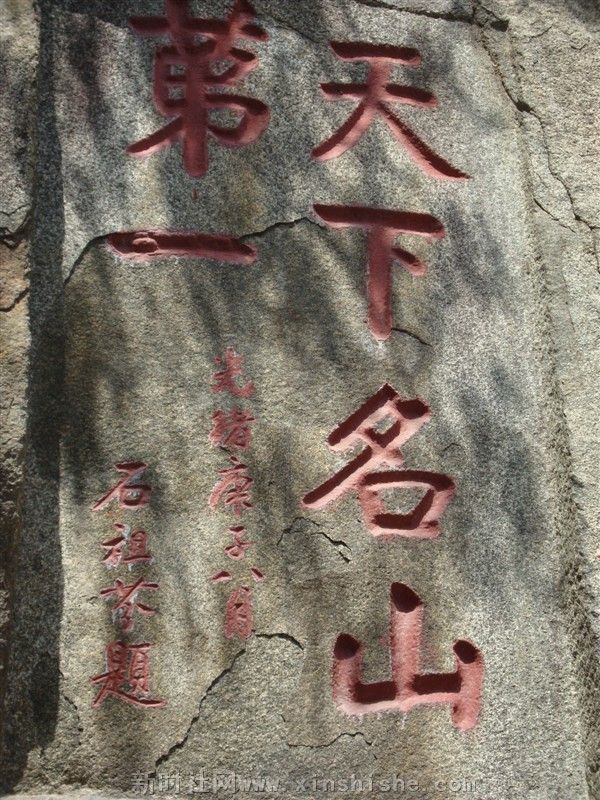 天下名山
第一
光緒庚子八月
石祖芬題
新时社网www.xinshishe.com